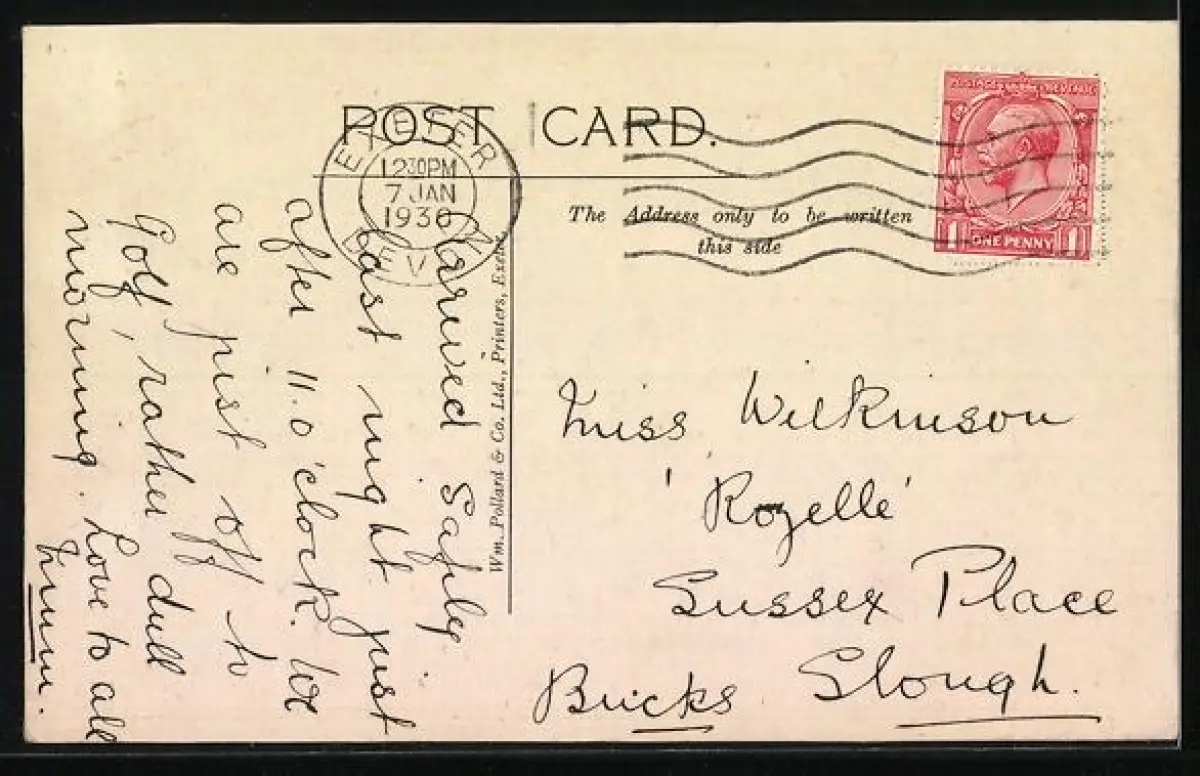 POST CARD.
EXETER
12 30 PM
7 JAN
1936
DEVON
The Address only to be written
this side
POSTAGE REVENUE
1 ONE PENNY 1
Wm. Pollard & Co. Ltd., Printers, Exeter.
Arrived Safely
last night just
after 11.0'clock. We
are just off to
Golf, rather dull
morning. Love to all
Mum.
Miss Wilkinson
'Rozelle'
Sussex Place
Slough.
Bucks